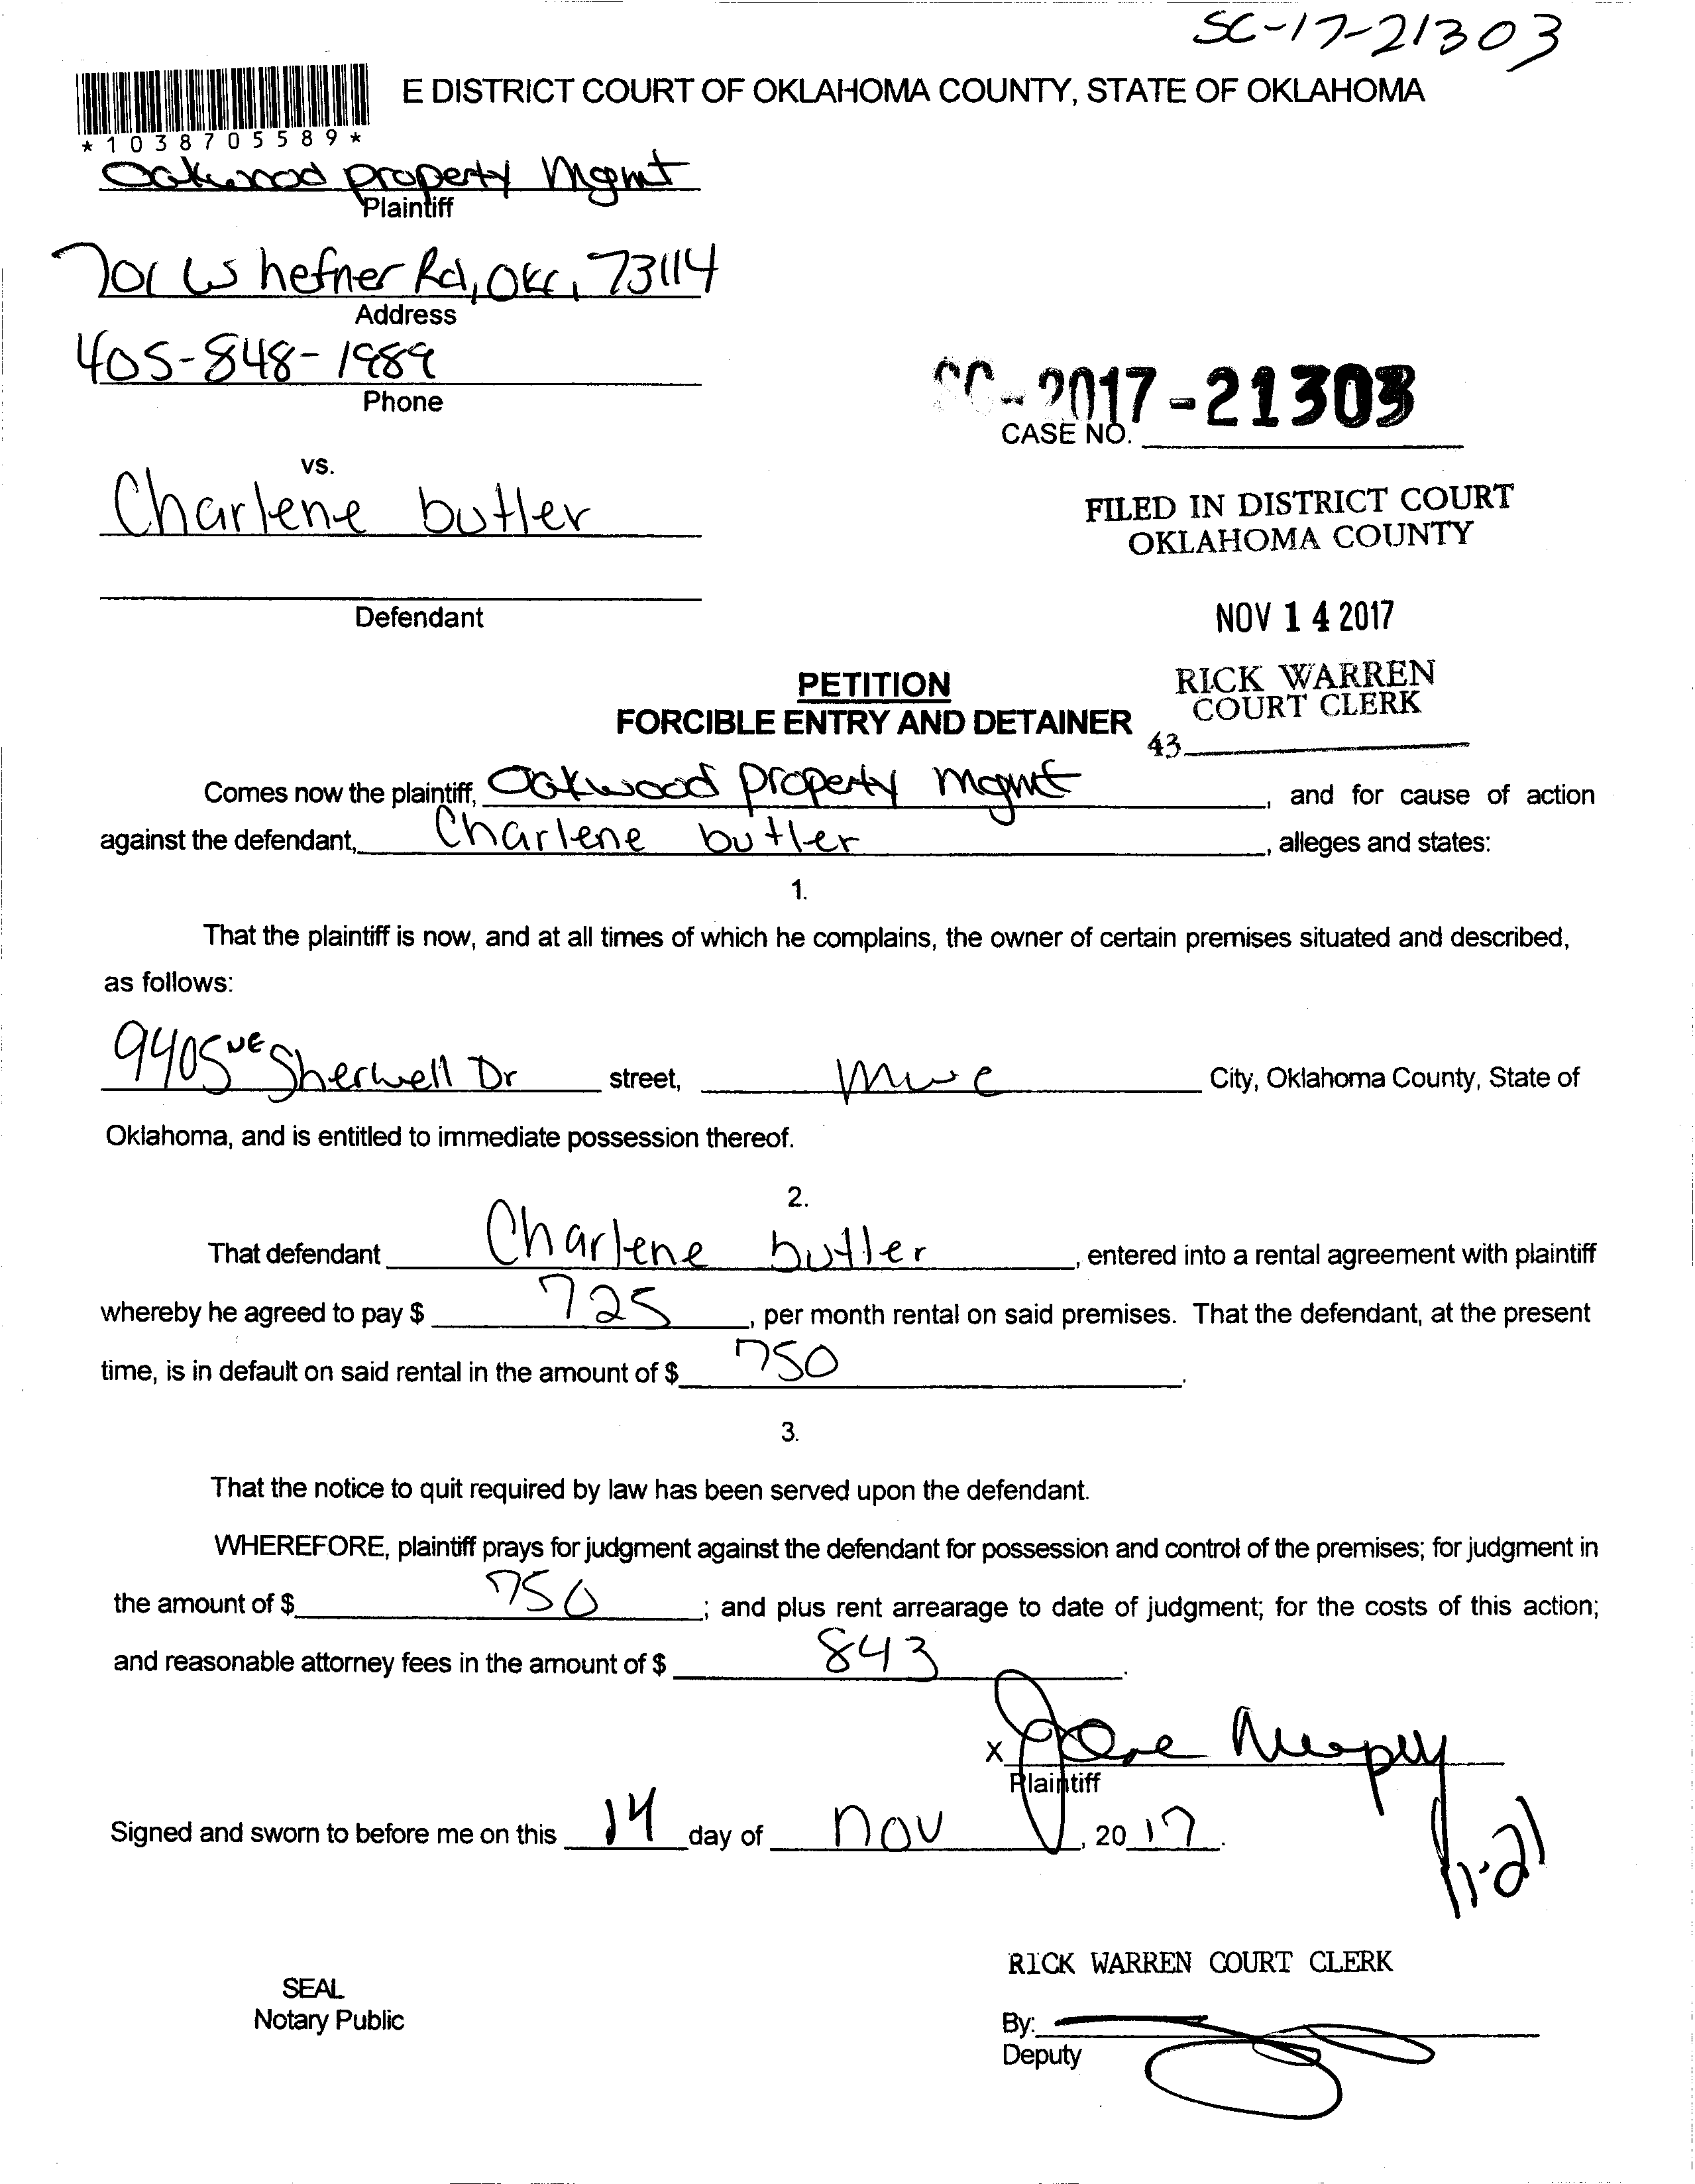 SC-17-21303
E DISTRICT COURT OF OKLAHOMA COUNTY, STATE OF OKLAHOMA
*1038705589*
Oakwood property Mgmt
Plaintiff
701 W hefner Rd, OKC, 73114
Address
405-848-1989
Phone
SC-2017-21303
CASE NO.
vs.
Charlene butler
FILED IN DISTRICT COURT
OKLAHOMA COUNTY
Defendant
NOV 14 2017
PETITION
RICK WARREN
COURT CLERK
FORCIBLE ENTRY AND DETAINER
43
Comes now the plaintiff, Oakwood property mgmt, and for cause of action
against the defendant, Charlene butler, alleges and states:
1.
That the plaintiff is now, and at all times of which he complains, the owner of certain premises situated and described,
as follows:
9405 NE Sherwell Dr street, mwc City, Oklahoma County, State of
Oklahoma, and is entitled to immediate possession thereof.
2.
That defendant Charlene butler, entered into a rental agreement with plaintiff
whereby he agreed to pay $ 725, per month rental on said premises. That the defendant, at the present
time, is in default on said rental in the amount of $ 750.
3.
That the notice to quit required by law has been served upon the defendant.
WHEREFORE, plaintiff prays for judgment against the defendant for possession and control of the premises; for judgment in
the amount of $ 750; and plus rent arrearage to date of judgment; for the costs of this action;
and reasonable attorney fees in the amount of $ 843.
x
Plaintiff
Signed and sworn to before me on this 14 day of nov, 20 17.
11-21
RICK WARREN COURT CLERK
SEAL
Notary Public
By:
Deputy